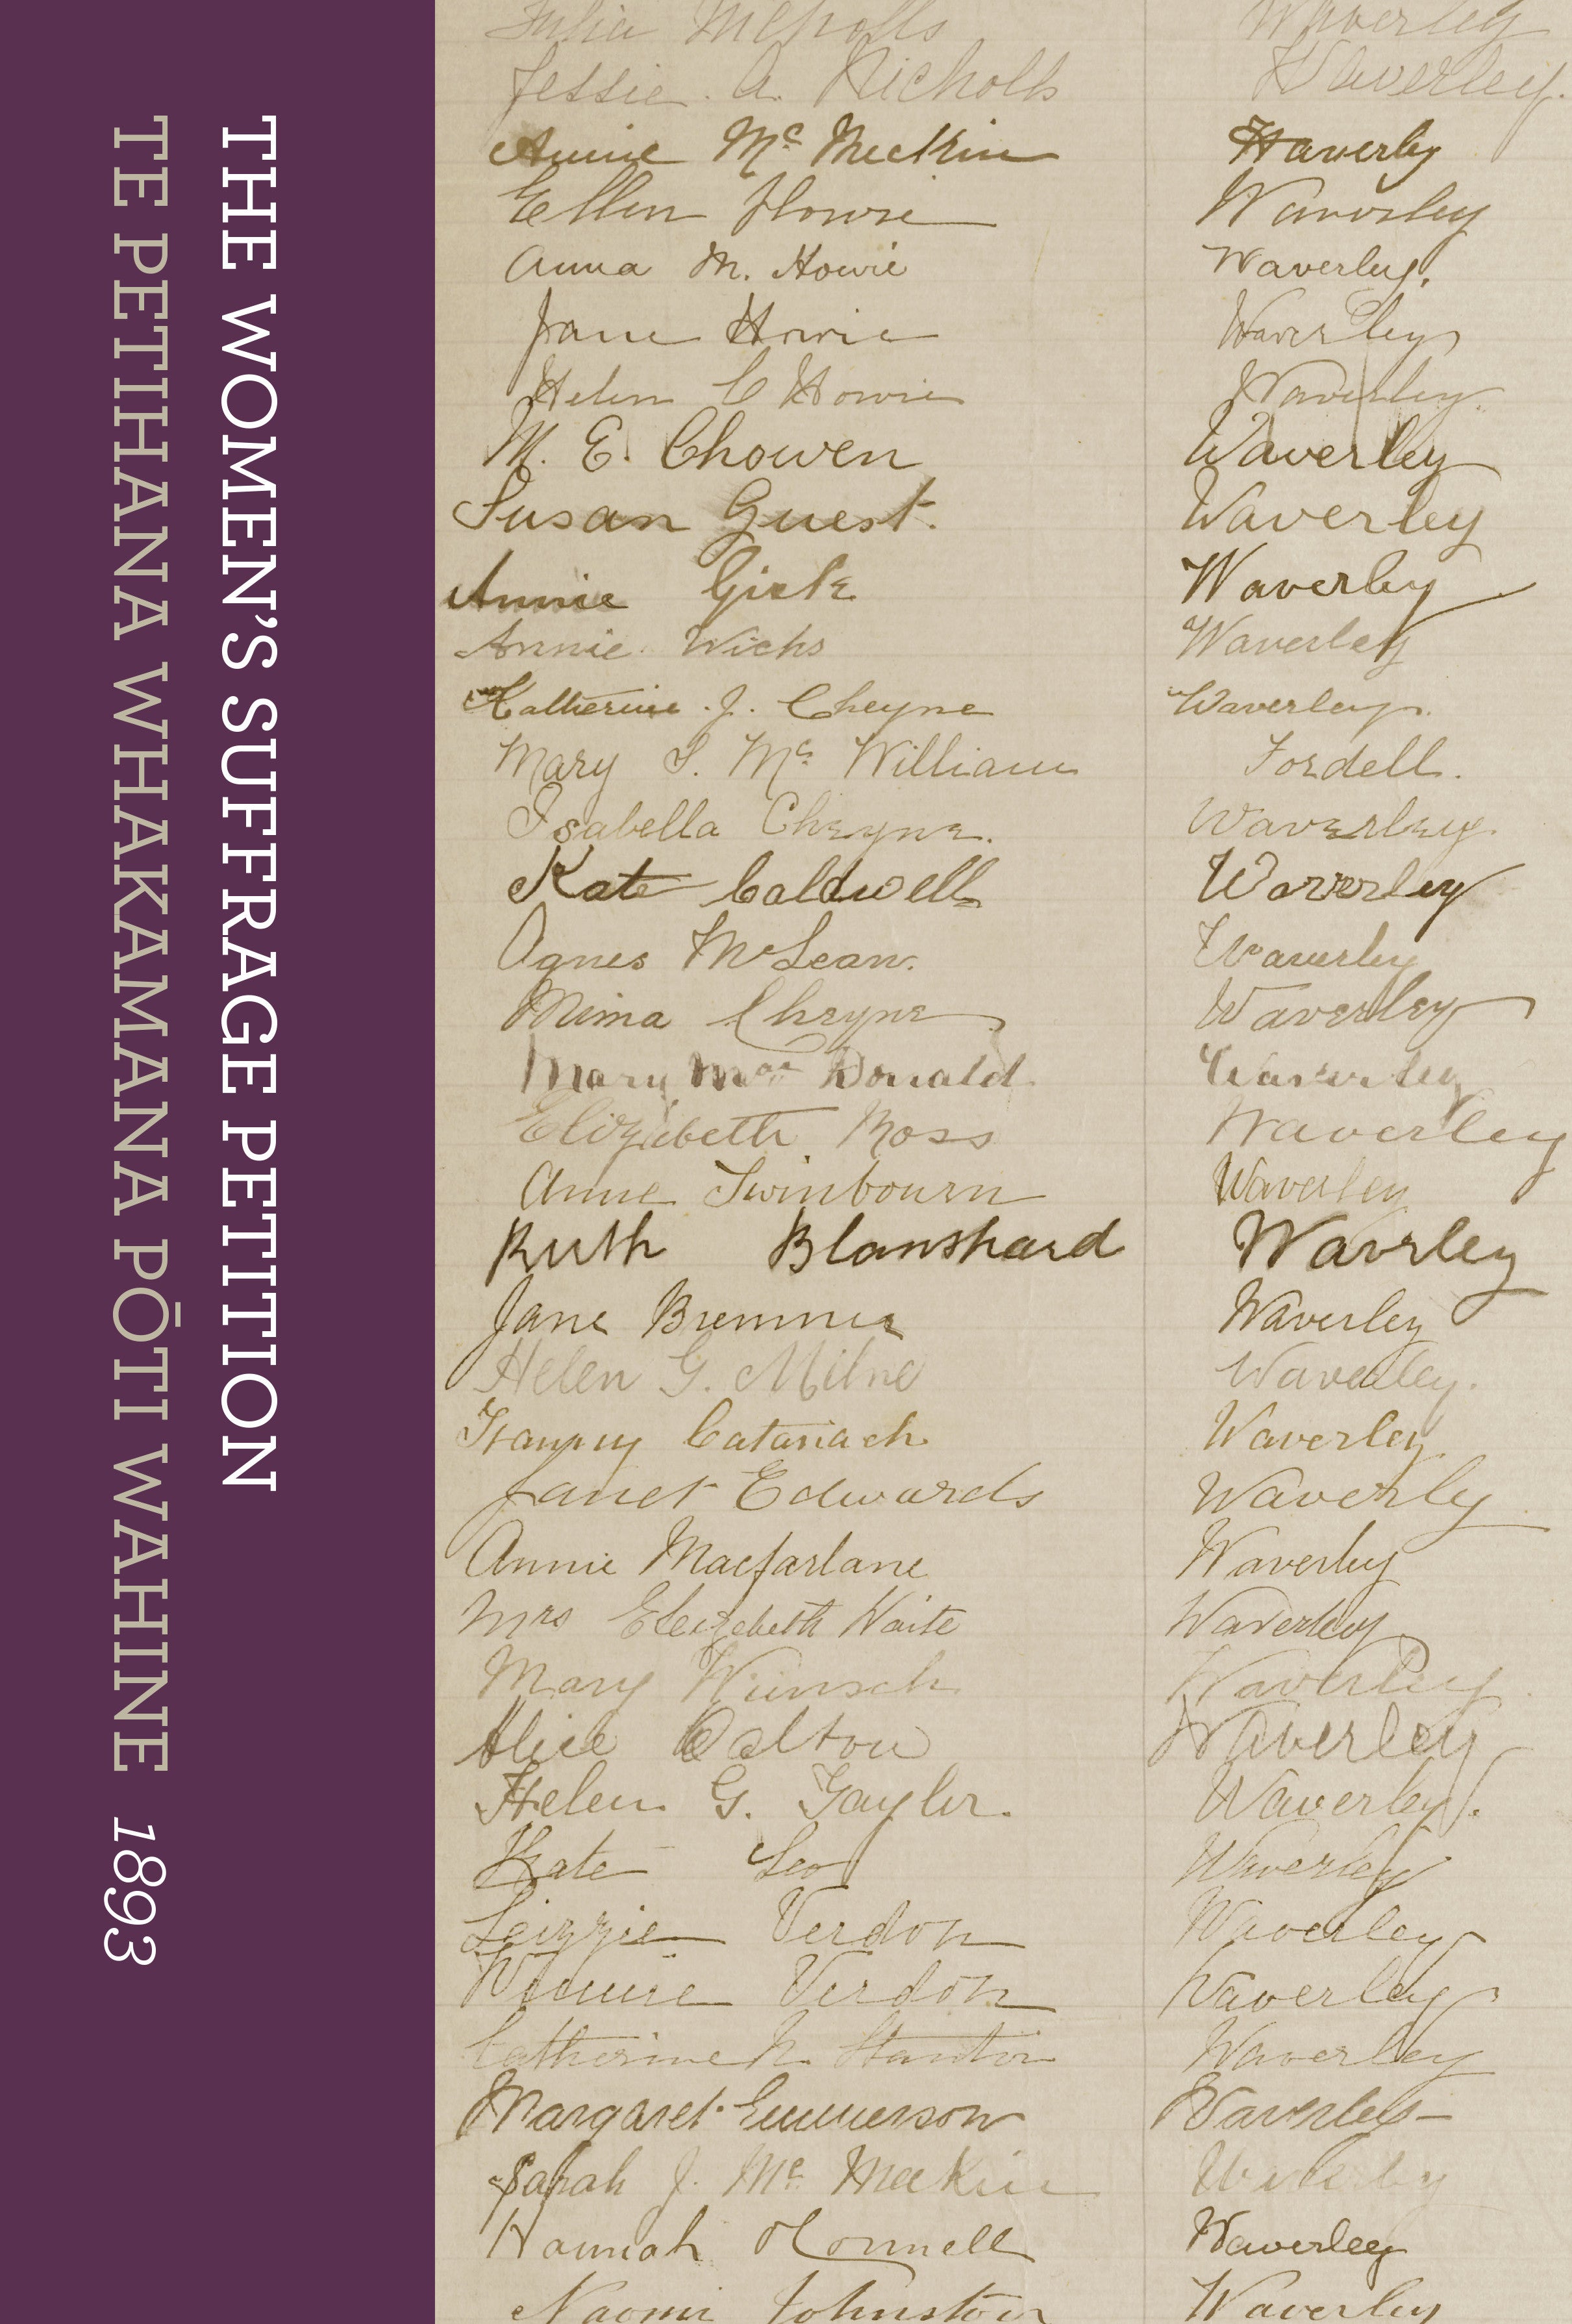 THE WOMEN'S SUFFRAGE PETITION
TE PETIHANA WHAKAMANA PŌTI WAHINE 1893
Julia Waverley
Jessie. A. Nicholls Waverley.
Annie Mc Meckin Waverly
Ellen Howie Waverley
Anna M. Howie Waverley.
Jane Howie Waverley
Helen C Howie Waverley.
M. E. Chowen Waverley
Susan Guest. Waverley
Annie Waverley
Annie Wicks Waverley
Katherine . J. Cheyne Waverley.
Mary S. Mc William Fordell.
Isabella Cheyne. Waverley.
Kate Caldwell Waverley
Agnes McLean. Waverley
Mima Cheyne Waverley
Mary Mac Donald. Waverley
Elizabeth Ross Waverley
Anne Swinbourn Waverley
Ruth Blanshard Waverley
Jane Bremner Waverley
Helen G. Milne Waverley.
Catanach Waverley
Janet Edwards Waverly
Annie Macfarlane Waverley
Mrs Elizabeth Waite Waverley
Mary Wünsch Waverley
Alice Dalton Waverley
Helen G. Gayler. Waverley.
Kate Waverley
Lizzie Verdon Waverley
Winnie Verdon Waverley
Catherine Waverley
Margaret Emmerson Waverley
Sarah J. Mc Meekin Waverley
Hannah OConnell Waverley
Naomi Johnston Waverley